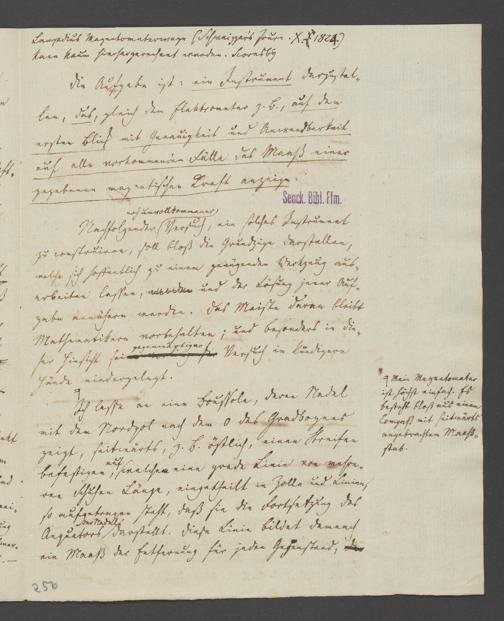 Lampadius Magnetometerwage (Schweiggers Journ. X. 1824)
kann kaum hierhergerechnet werden. Scoresby
Die Aufgabe ist: ein Instrument darzustel-
len, das, gleich dem Elektrometer z. B., auf den
ersten Blick mit Genauigkeit und Anwendbarkeit
auf alle vorkommenden Fälle das Maaß einer
gegebenen magnetischen Kraft anzeige.
Senck. Bibl. Ffm.
noch unvollkommener
Nachfolgender Versuch, ein solches Instrument
zu construiren, soll bloß die Grundzüge darstellen,
welche sich hoffentlich zu einem genügenden Werkzeug aus-
arbeiten lassen, und der Lösung jener Auf-
gabe annähern werden. Das Meiste daran bleibt
Mathematikern vorbehalten; und besonders in die-
ser Hinsicht sei gegenwärtiger Versuch in kundigere
Hände niedergelegt.
Ich lasse an eine Boussole, deren Nadel
mit dem Nordpol nach dem 0 des Gradbogens
zeigt, seitwärts, z. B. östlich, einen Streifen
befestigen, auf welchem eine grade Linie von mehre-
ren Schuhen Länge, eingetheilt in Zolle und Linien
so aufgetragen steht, daß sie die Fortsetzung des
Aequators der Nadel darstellt. Diese Linie bildet demnach
ein Maaß der Entfernung für jeden Gegenstand,
Mein Magnetometer
ist höchst einfach. Es
besteht bloß aus einem
Compaß mit seitwärts
angebrachtem Maaß-
stab.
256